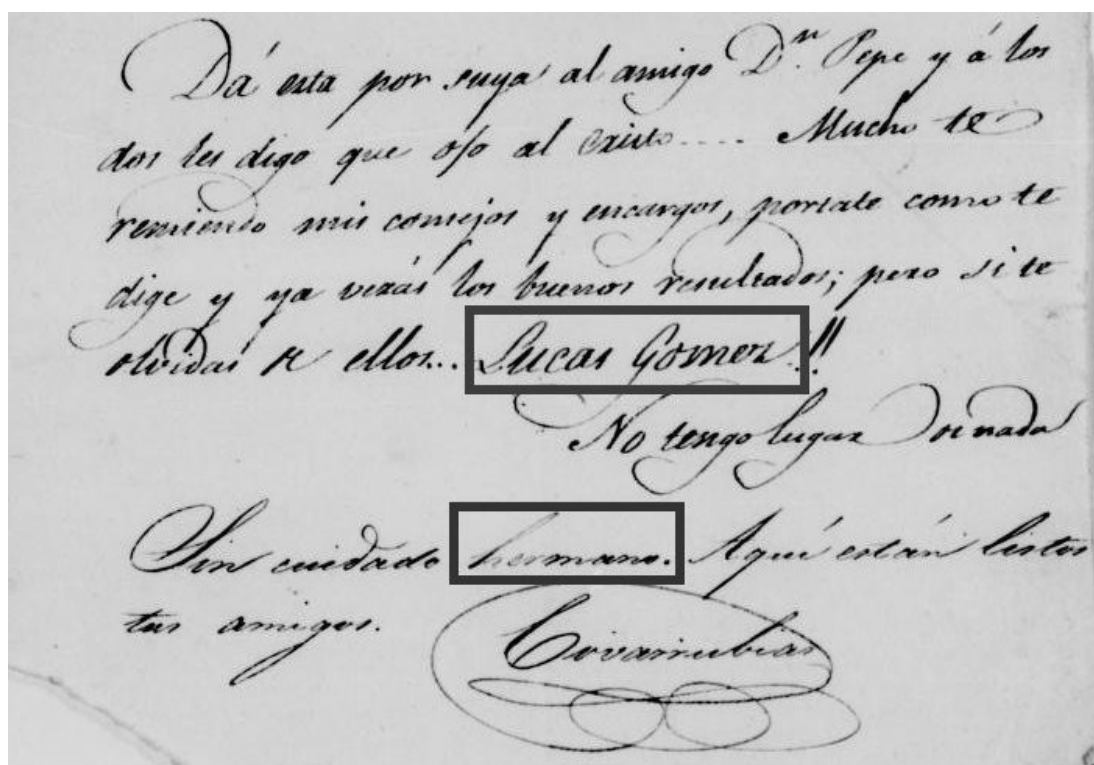 Dá esta por suya al amigo Dⁿ. Pepe y á los
dos les digo que ojo al Cristo.... Mucho te
remiendo mis consejos y encargos, portate como te
dige y ya verás los buenos resultados; pero si te
olvidas de ellos... Lucas Gomez!!
No tengo lugar de nada
Sin cuidado hermano. Aquí están listos
tus amigos.
Covarrubias